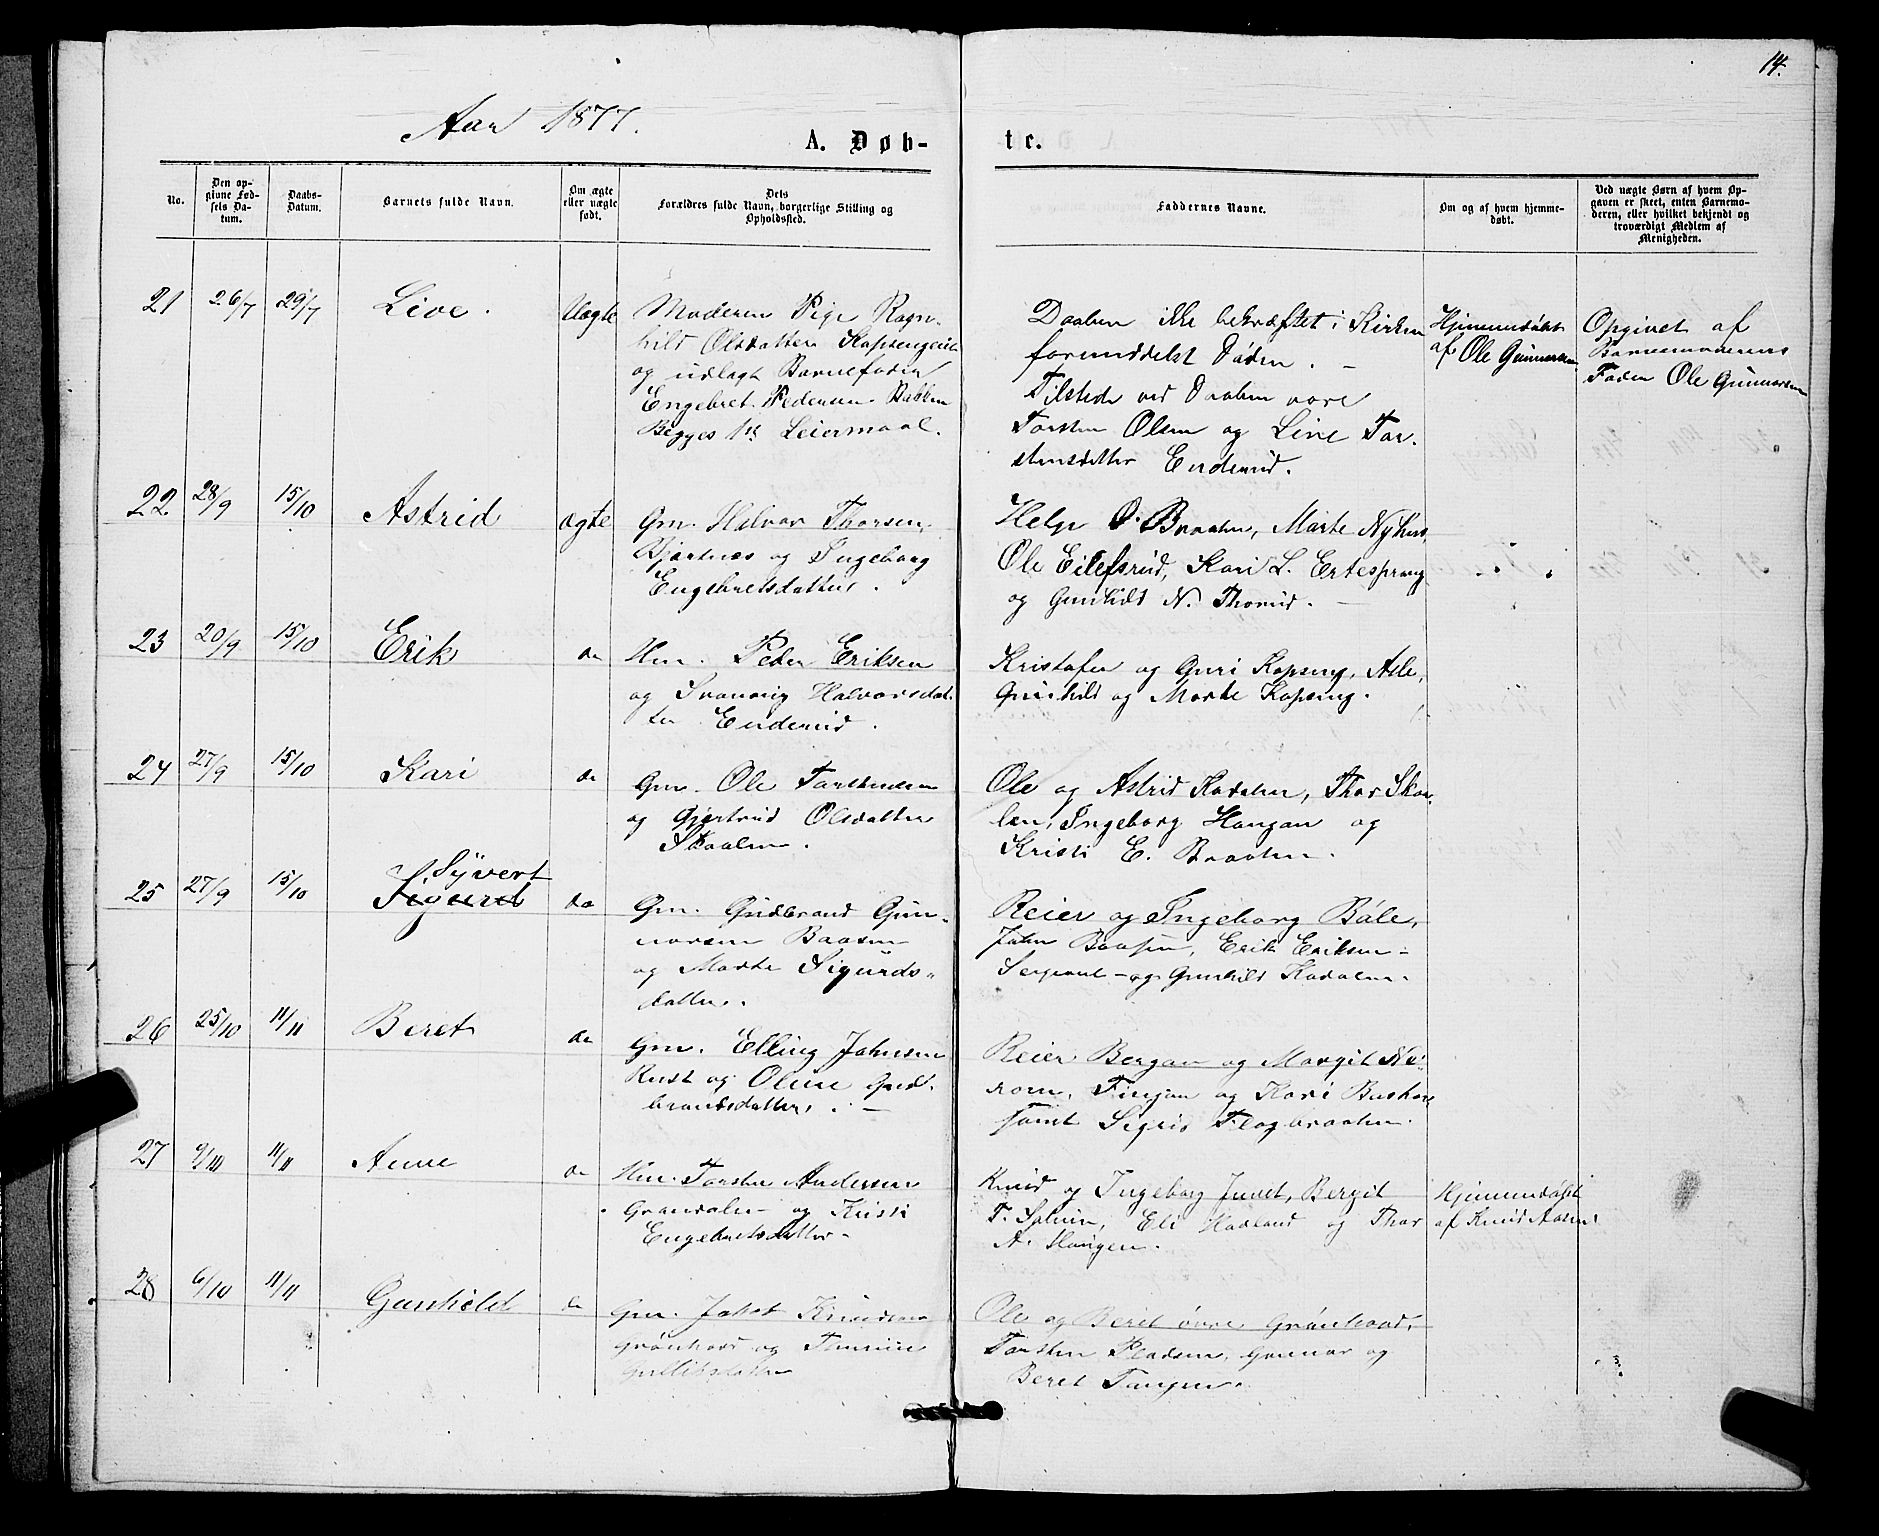 14.
Aar 1877.
A. Døb-
te.
No.
Den op-
givne Fød-
sels Da-
tum.
Daabs-
Datum.
Barnets fulde Navn.
Om ægte
eller uægte
født.
Dets
Forældres fulde Navn, borgerlige Stilling og
Opholdssted.
Faddernes Navne.
Om og af hvem hjemme-
døbt.
Ved uægte Børn af hvem Op-
gaven er skeet, enten Barnemo-
deren, eller hvilket bekjendt og
troværdigt Medlem af
Menigheden.
21 26/7 29/7 Live. Uægte
Moderen Pige Ragn-
hild Olsdatter
og udlagt Barnefader
Engebret Pedersen Bakken
Begges 1ste Leiermaal.
Daaben ikke bekræftet i Kirken
formedelst Døden. –
Tilstede ved Daaben vare
Torsten Olsen og Live Tor-
stensdatter Enderud.
Hjemmedøbt
af Ole Gunnarsen
Opgivet af
Barnemoderens
Fader Ole Gunnarsen
22 28/9 15/10 Astrid ægte
Gm. Halvor Thorsen
Bjertnæs og Ingeborg
Engebretsdatter.
Helge O. Braaten, Marte Nyhus,
Ole Eilefsrud, Kari L. Ertesprang
og Gunhild N. Thorud. –
23 20/9 15/10 Erik do
Hm. Peder Eriksen
og Svanaug Halvorsdat-
ter Enderud.
Kristofer og Guri Kopseng, Asle,
Gunhild og Marte Kopseng.
24 27/9 15/10 Kari do
Gm. Ole Torstensen
og Gjertrud Olsdatter
Skaalen.
Ole og Astrid Kadalen, Thor Skaa-
len, Ingeborg Haugan og
Kristi E. Braaten.
25 27/9 15/10 Syvert
Sigurd do
Gm. Gudbrand Gun-
narsen Baasen
og Marte Sigurds-
datter.
Reier og Ingeborg Bøle,
John Baasen, Erik Eriksen –
Sergeant – og Gunhild Kadalen.
26 25/10 11/11 Beret do
Gm. Elling Johnsen
Rust og Oline Gud-
brandsdatter. –
Reier Bergan og Margit Ne-
rom, Fingan og Kari
samt Sigrid Flagbraaten.
27 9/10 11/11 Anne do
Hm. Torsten Andersen
Grandalen og Kristi
Engebretsdatter.
Knud og Ingeborg Juvet, Bergit
T. Eli Hadland og Thor
A. Haugen.
Hjemmedøbt
af Knud Aasen
28 6/10 11/11 Gunhild do
Gm. Jakob Knudsen
Grønhovd og
Gulliksdatter
Ole og Beret øvre Grønhovd,
Torsten Pladsen, Gunnar og
Beret Tangen.